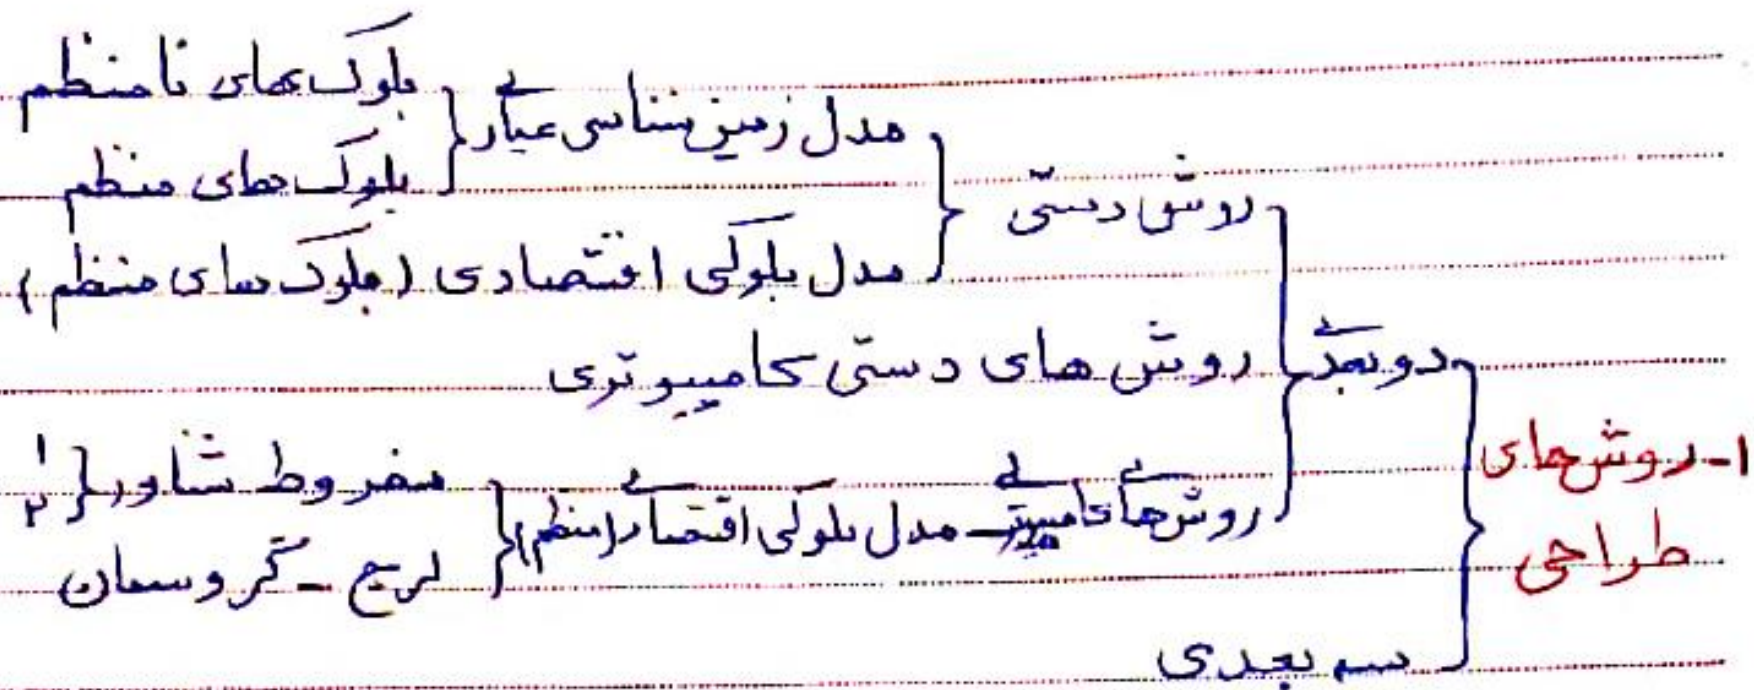 ۱- روش‌های طراحی
دو بعدی
روش دستی
مدل زمین شناسی عیاری
بلوک های نامنظم
بلوک های منظم
مدل بلوکی اقتصادی (بلوک های منظم)
روش های دستی کامپیوتری
روش های کامپیوتری - مدل بلوکی اقتصادی (منظم)
مخروط شناور
۱
۲
لرچ - گروسمان
سه بعدی